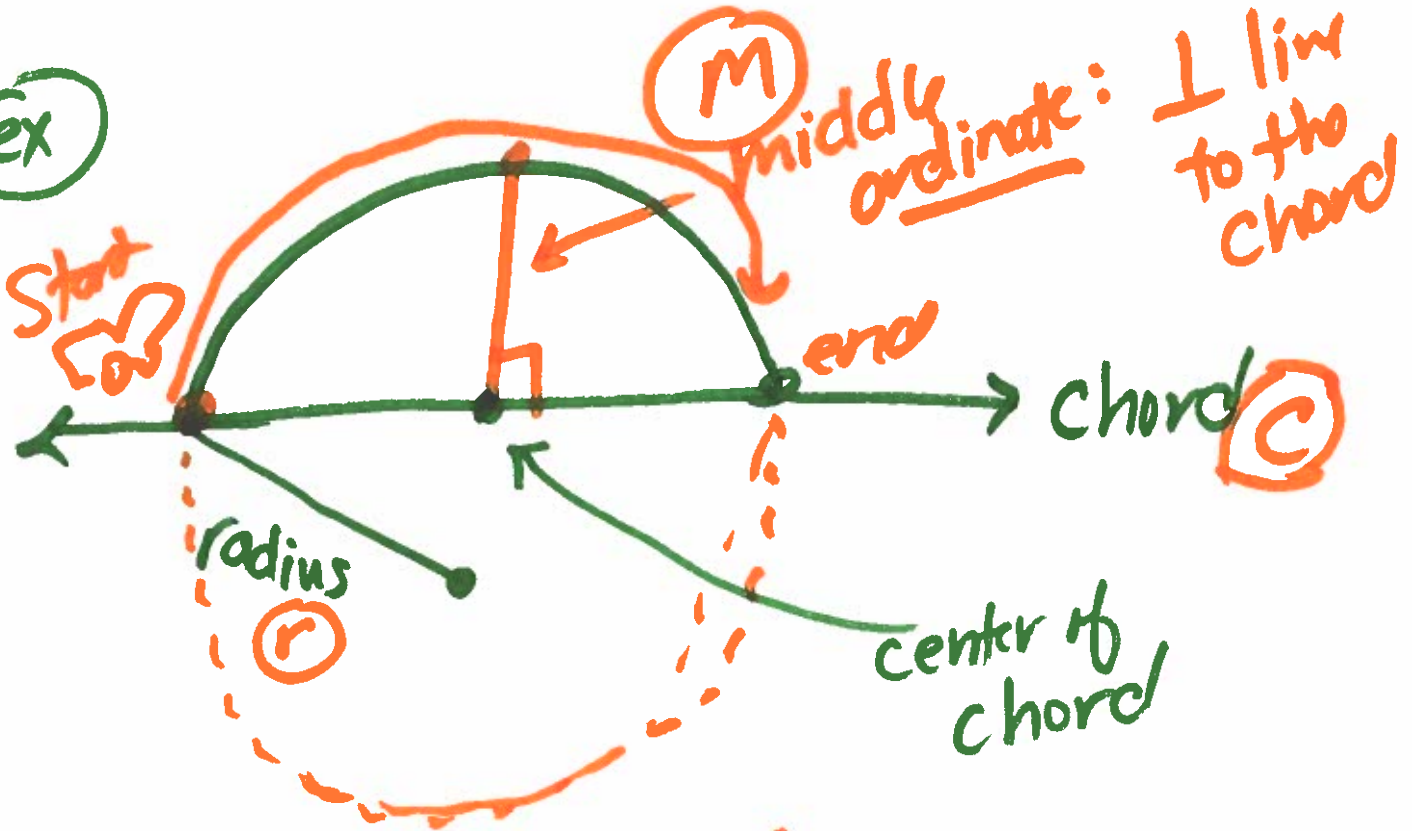 ex
M
middle
ordinate: ⊥ line
to the
chord
Start
end
chord C
radius
r
center of
chord